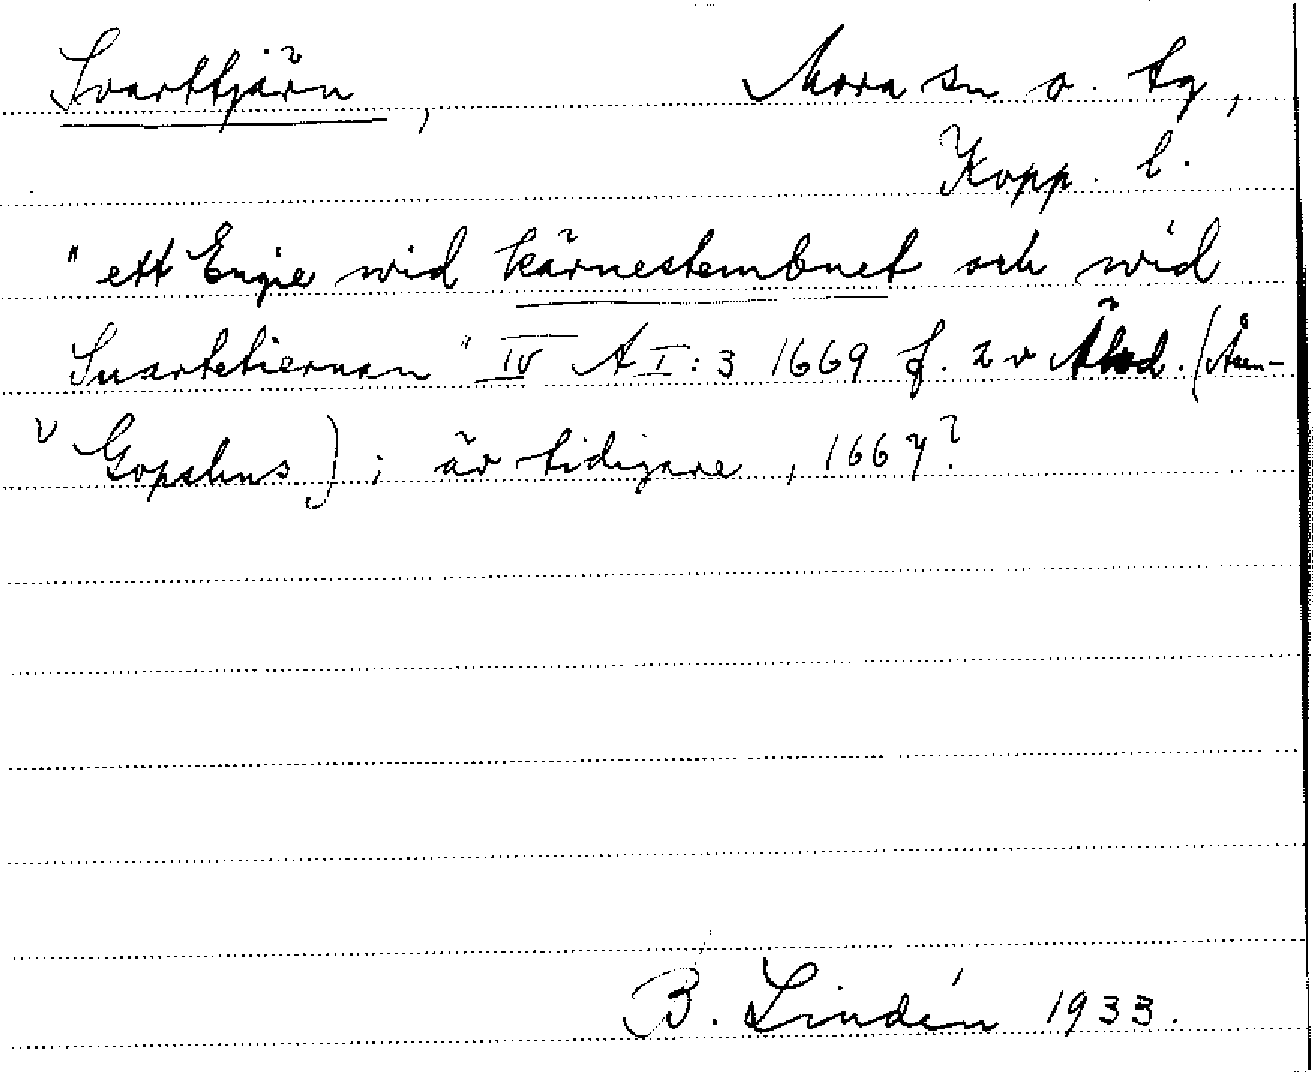 Svarttjärn, Mora sn o. tg,
Kopp. l.
"ett Engie wid kärnestembnet och wid
Suartetiernan" IV A I:3 1669 f. 2 v (Åun-
v Gopshus); är tidigare, 1667?
B. Lindén 1933.